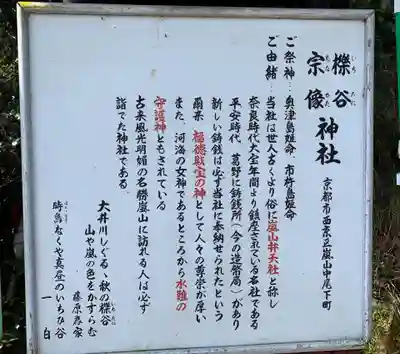 櫟谷 いち たに
宗像 むな かた
神社
京都市西京区嵐山中尾下町
ご祭神…奥津島姫命 市杵島姫命
ご由緒…当社は世人古くより俗に嵐山弁天社と称し
奈良時代大宝年間より鎮座されている名社である
平安時代、葛野に鋳銭所(今の造幣局)があり
新しい鋳銭は必ず当社に奉納せられたという
爾来、福徳財宝の神として人々の尊崇が厚い
また、河海の女神であるところから水難の
守護神ともされている
古来風光明媚の名勝嵐山に訪れる人は必ず
詣でた神社である
大井川しぐるゝ秋の櫟谷 いちだに
山や嵐の色をかすらむ
藤原為家
時鳥なくや真昼のいちひ谷
一白